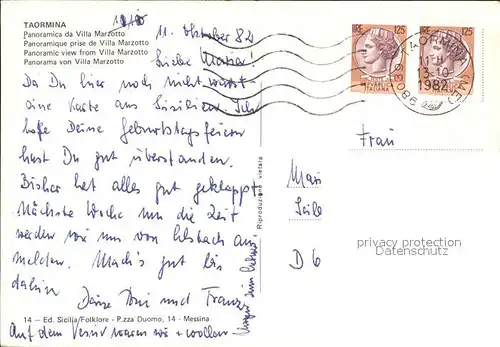 TAORMINA
Panoramica da Villa Marzotto
Panoramique prise de Villa Marzotto
Panoramic view from Villa Marzotto
Panorama von Villa Marzotto
11. Oktober 82
Liebe Maria!
Da Du hier noch nicht warst
eine Karte aus Sizilien. Ich
hoffe Deine Geburtstagsfeiern
hast Du gut überstanden.
Bisher hat alles gut geklappt
Nächste Woche um die Zeit
werden wir uns von aus
melden. Mach's gut bis
dahin
Deine Toni und Franz
14 - Ed. Sicilia Folklore - P.zza Duomo, 14 - Messina
Auf dem Vesuv waren wir + wollen
Riproduzione vietata
125
125
ITALIANA
TAORMINA (ME)
13-10
1982
98039
Frau
D 6
privacy protection
Datenschutz